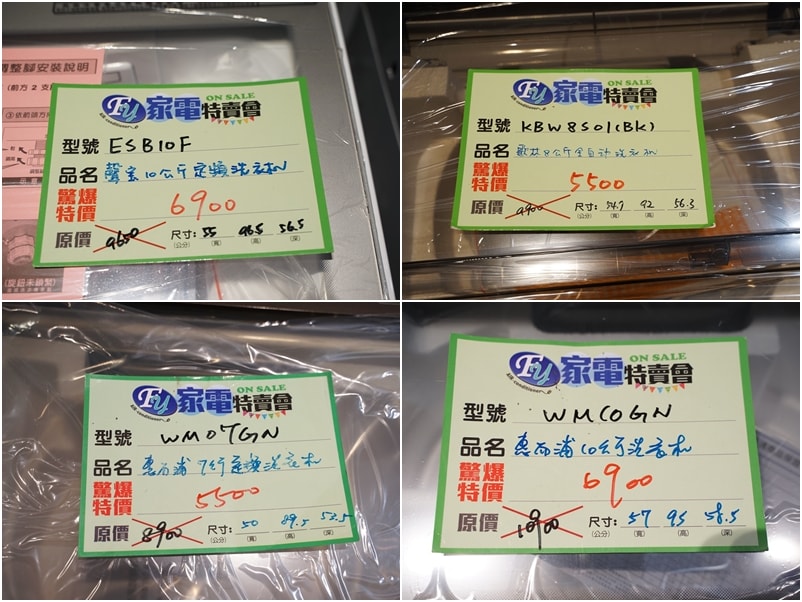 調整腳安裝說明
(前方2支
③依前頭方
(旋鈕未鎖緊)
Fy 家電特賣會 ON SALE
型號 ESB10F
品名 聲寶10公斤定頻洗衣机
驚爆特價 6900
原價 9650 尺寸: 55 96.5 56.5
(公分) (寬) (高) (深)
Fy 家電特賣會 ON SALE
型號 KBW8S01(BK)
品名 歌林8公斤全自动洗衣机
驚爆特價 5500
原價 9900 尺寸: 54.7 92 56.3
(公分) (寬) (高) (深)
Fy 家電特賣會 ON SALE
air conditioner
型號 WM07GN
品名 惠而浦7公斤定頻洗衣机
驚爆特價 5500
原價 8900 尺寸: 50 89.5 52.5
(公分) (寬) (高) (深)
Fy 家電特賣會 ON SALE
air conditioner
型號 WM10GN
品名 惠而浦10公斤洗衣机
驚爆特價 6900
原價 10900 尺寸: 57 95 58.5
(公分) (寬) (高) (深)